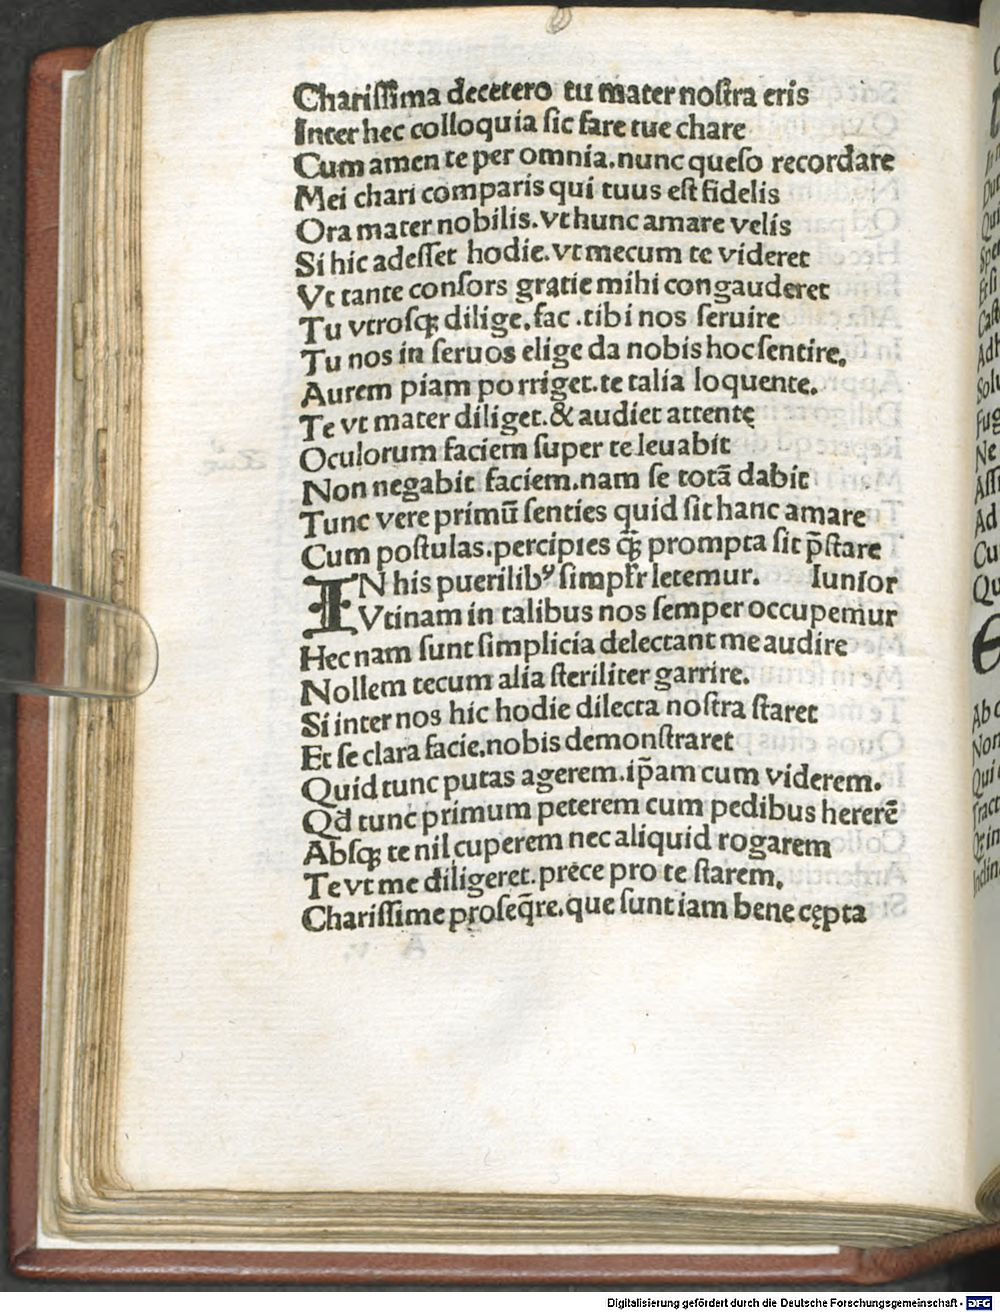 Chariſſima decetero tu mater noſtra eris
Inter hec colloquia ſic fare tue chare
Cum amen te per omnia.nunc queſo recordare
Mei chari comparis qui tuus eſt fidelis
Ora mater nobilis.vt hunc amare velis
Si hic adeſſet hodie.vt mecum te videret
Vt tante conſors gratie mihi congauderet
Tu vtroſqꝫ dilige.fac .tibi nos ſeruire
Tu nos in ſeruos elige da nobis hoc ſentire.
Aurem piam porriget.te talia loquente.
Te vt mater diliget.& audiet attentę
Oculorum faciem ſuper te leuabit
Non negabit faciem.nam ſe totā dabit
Tunc vere primū ſenties quid ſit hanc amare
Cum poſtulas.percipies q̃ꝫ prompta ſit p̄ſtare
IN his puerilibꝰ ſimpłr letemur. Iunior
Vtinam in talibus nos ſemper occupemur
Hec nam ſunt ſimplicia delectant me audire
Nollem tecum alia ſteriliter garrire.
Si inter nos hic hodie dilecta noſtra ſtaret
Et ſe clara facie.nobis demonſtraret
Quid tunc putas agerem.ip̄am cum viderem.
Qd̄ tunc primum peterem cum pedibus hererē
Abſqꝫ te nil cuperem nec aliquid rogarem
Te vt me diligeret.prece pro te ſtarem.
Chariſſime proſeq̄re.que ſunt iam bene cępta
Digitalisierung gefördert durch die Deutsche Forschungsgemeinschaft - DFG